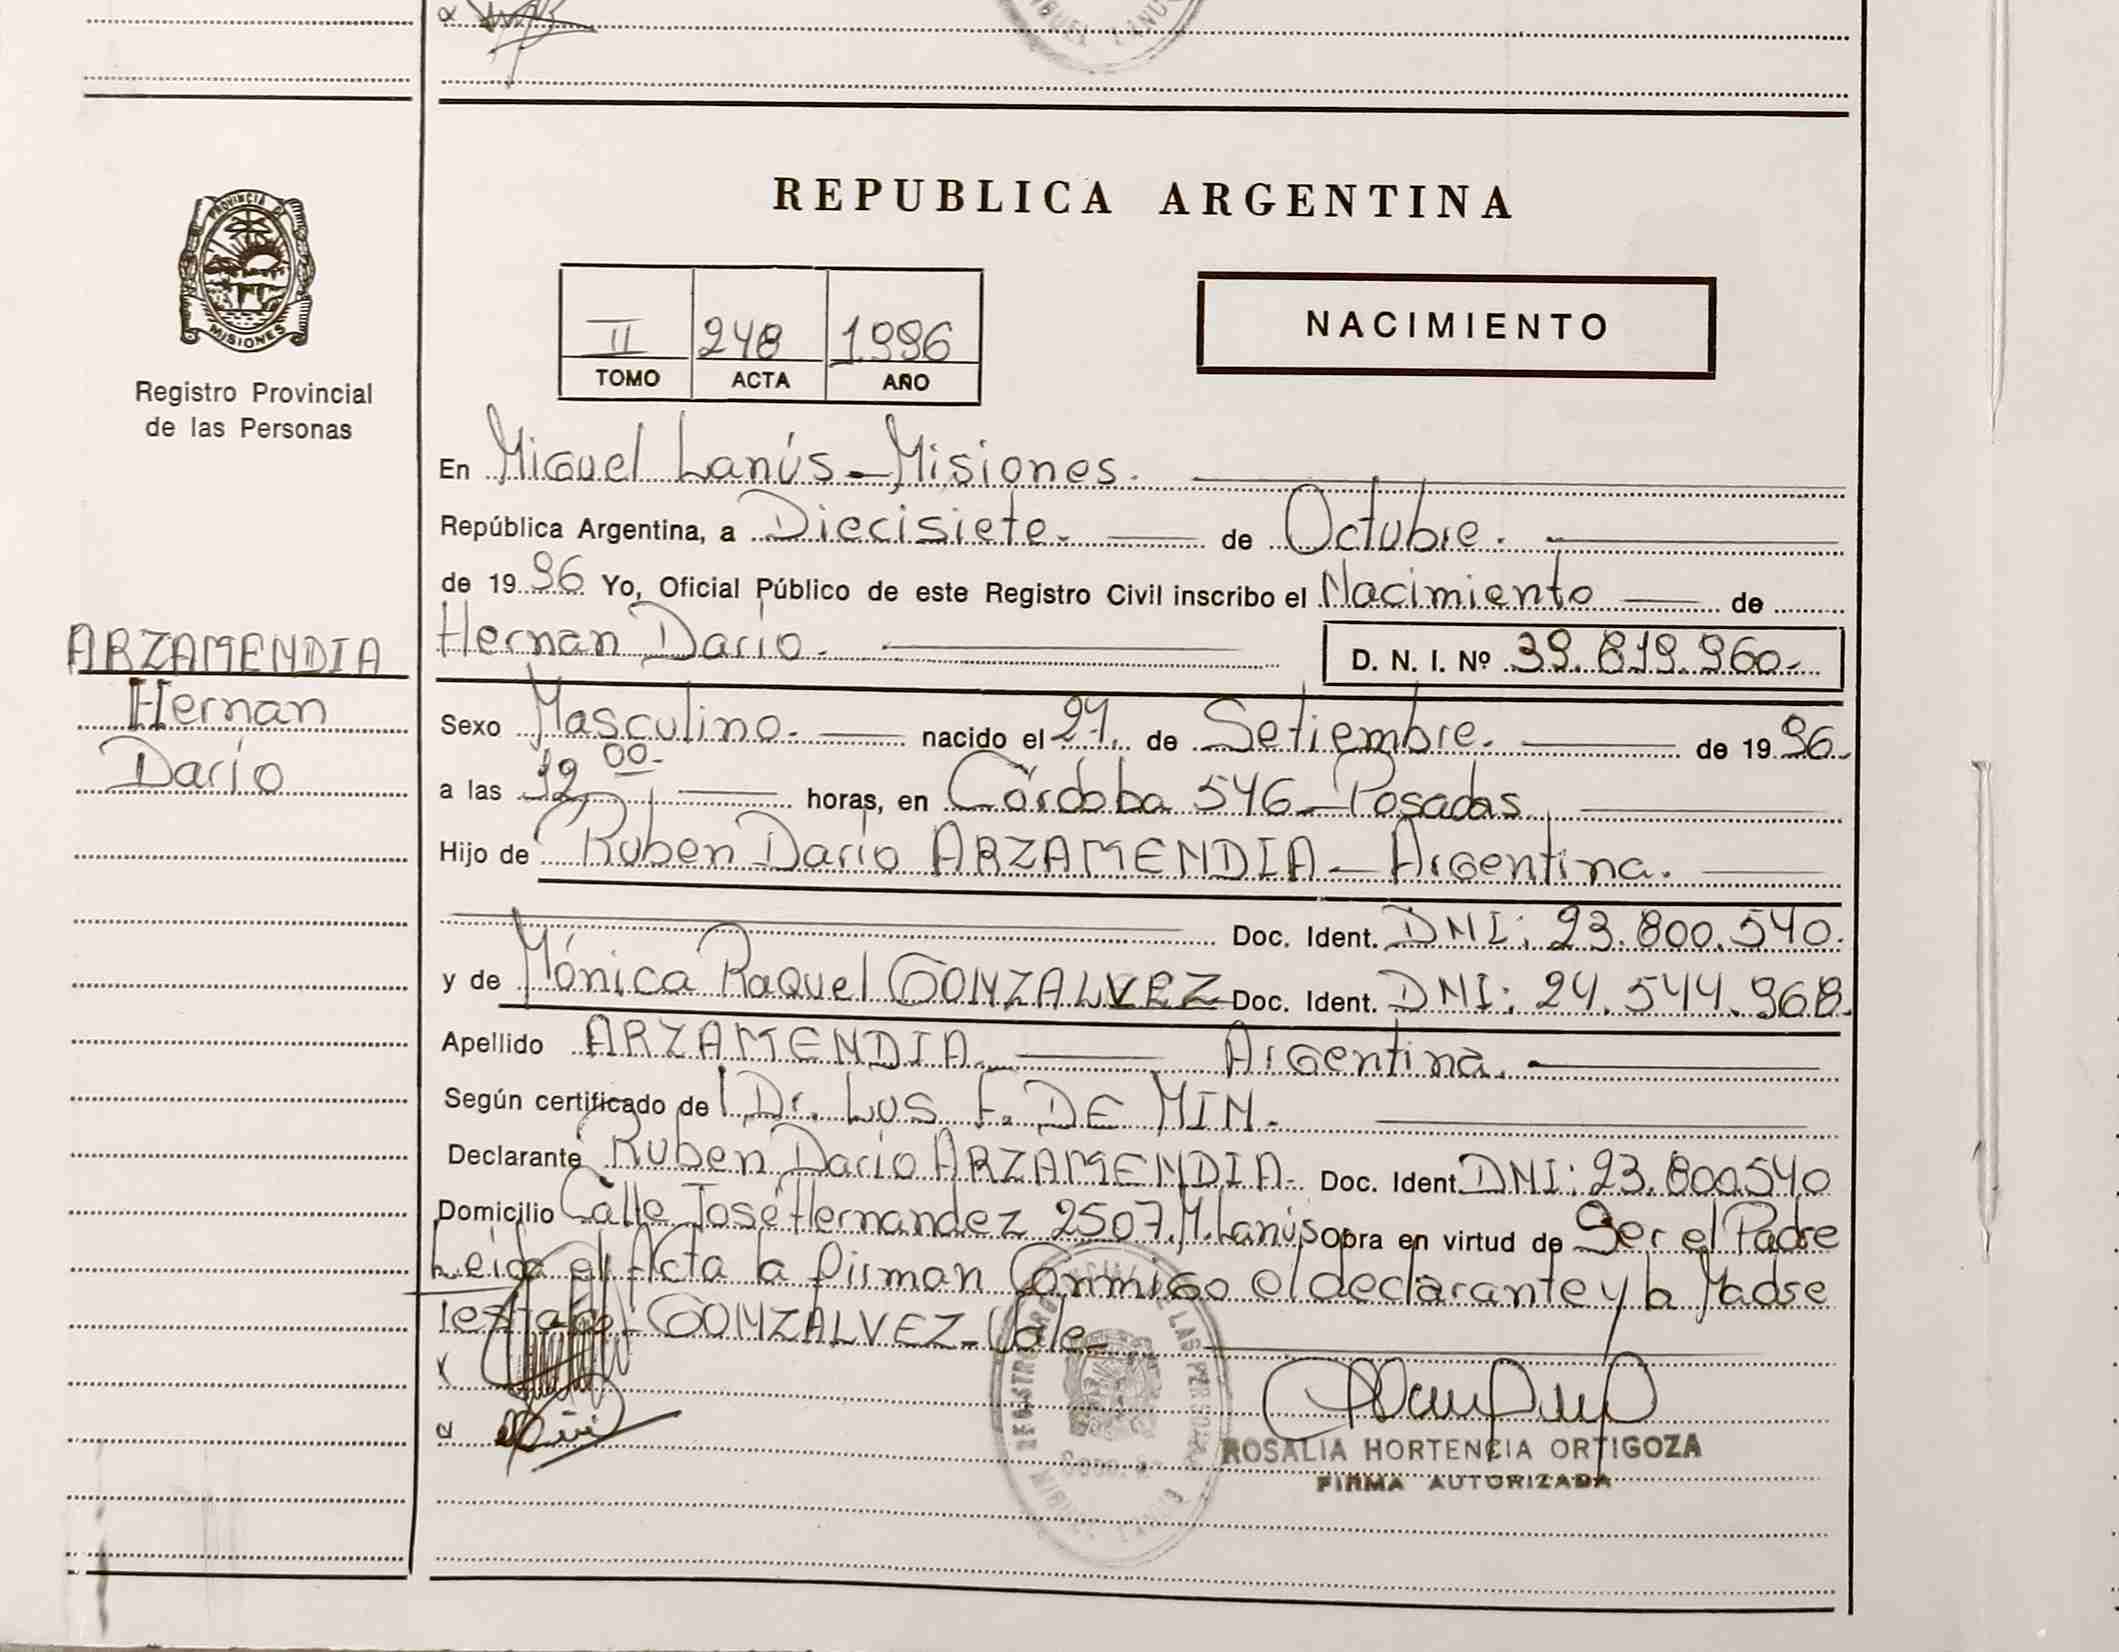 MIGUEL LANUS
PROVINCIA DE
MISIONES
Registro Provincial
de las Personas
ARZAMENDIA
Hernan
Darío
REPUBLICA ARGENTINA
II 248 1.996
TOMO ACTA AÑO
NACIMIENTO
En Miguel Lanús - Misiones.
República Argentina, a Diecisiete. de Octubre.
de 19 96 Yo, Oficial Público de este Registro Civil inscribo el Nacimiento de
Hernan Darío. D. N. I. Nº 39.819.960.-
Sexo Masculino. nacido el de Setiembre. de 19 96.
a las 00 horas, en Córdoba 546 - Posadas
Hijo de Ruben Darío ARZAMENDIA - Argentina.
Doc. Ident. DNI: 23.800.540.
y de Mónica Raquel GONZALVEZ Doc. Ident. DNI: 24.544.968.
Apellido ARZAMENDIA. Argentina.
Según certificado de Dr. F. DE MIN.
Declarante Ruben Darío ARZAMENDIA. Doc. Ident. DNI: 23.800540
Domicilio Calle José Hernandez 2507. M. Lanús obra en virtud de Ser el Padre
Leida el Acta la firman Conmigo el declarante y la Madre
GONZALVEZ - Vale
REGISTRO LAS PERSONAS
MIGUEL LANUS
ROSALIA HORTENCIA ORTIGOZA
FIRMA AUTORIZADA